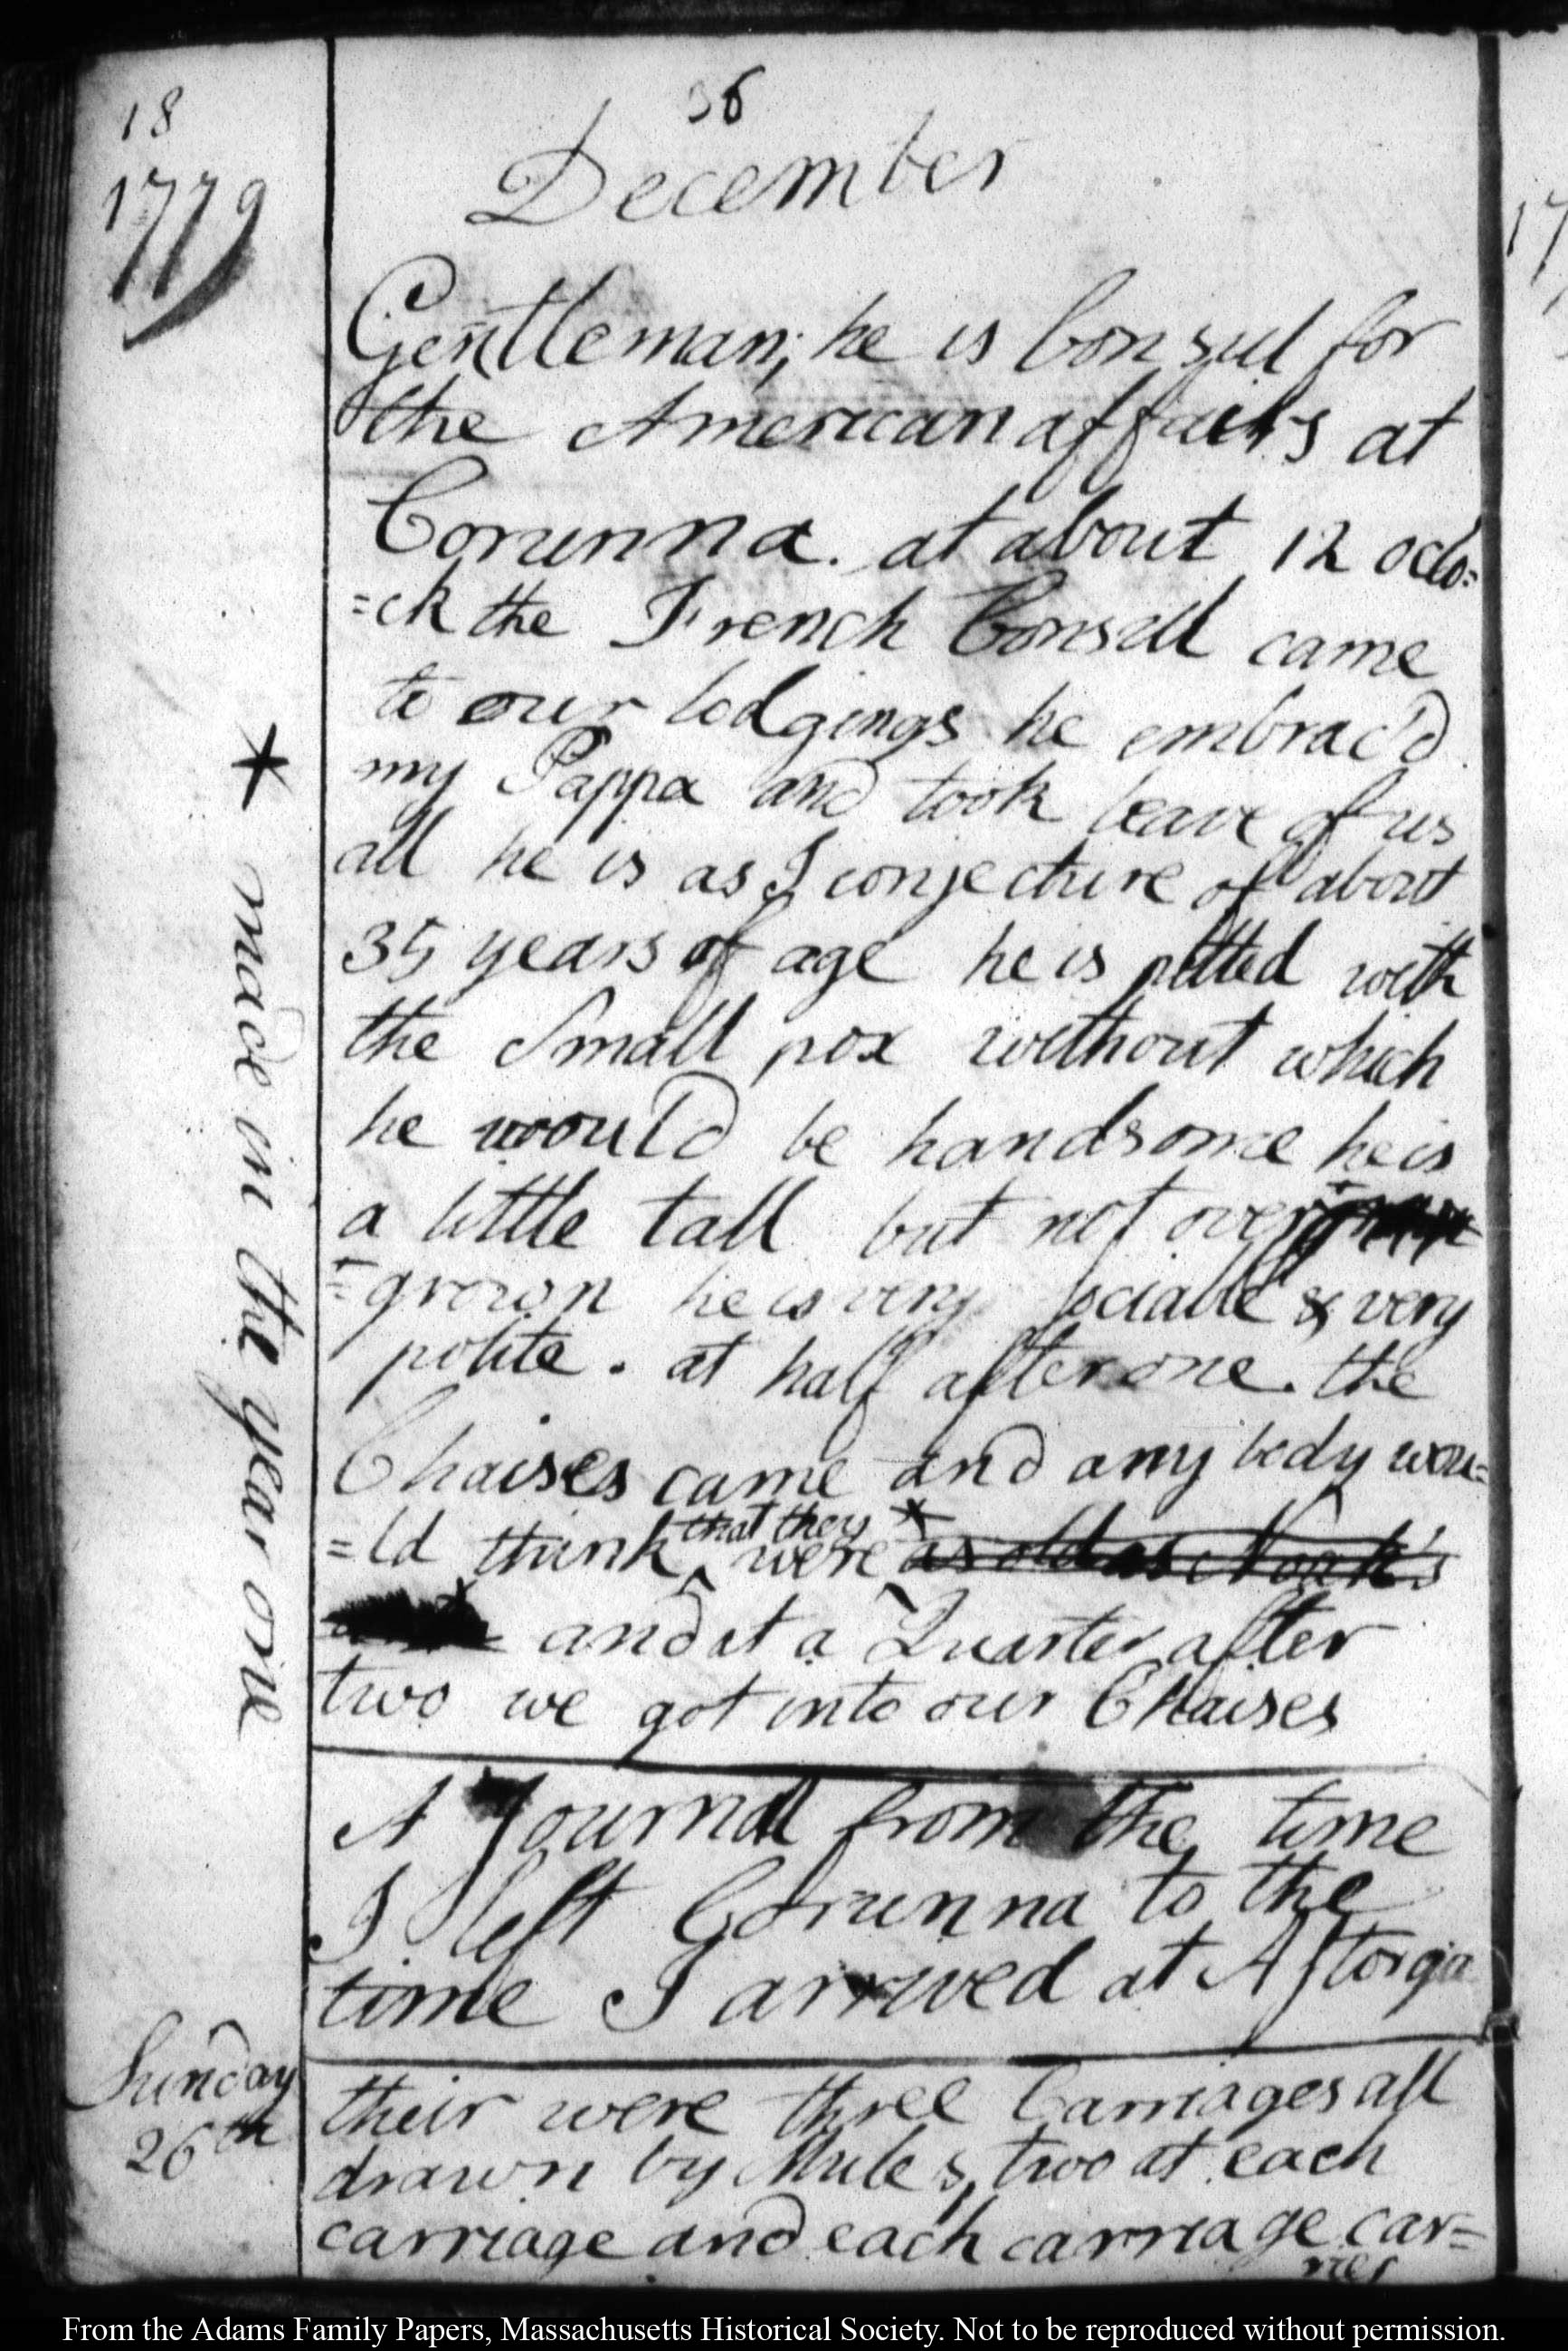 18
36
1779
December
Gentleman; he is Consul for
the American affairs at
Corunna. at about 12 oclo=
=ck the French Consull came
to our lodgings he embrac'd
my Pappa and took leave of us
all he is as I conjecture of about
35 years of age he is pitted with
the Small pox without which
he would be handsome he is
a little tall but not over
=grown he is very sociable & very
polite. at half after one. the
Chaises came and any body wou=
=ld think ^ that they were * as old as Noah's
and at a Quarter after
two we got into our Chaises
* made in the year one
A Journal from the time
I left Corunna to the
time I arrived at Astorga
Sunday
26th
their were three Carriages all
drawn by Mules, two at each
carriage and each carriage car=
ries
17
From the Adams Family Papers, Massachusetts Historical Society. Not to be reproduced without permission.